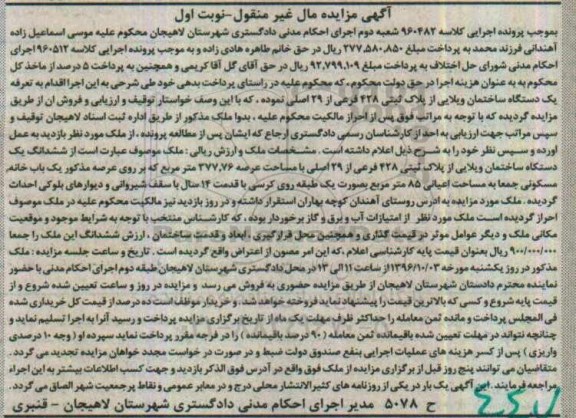 آگهی مزایده مال غیر منقول-نوبت اول
بموجب پرونده اجرایی کلاسه ۹۶۰۴۸۲ شعبه دوم اجرای احکام مدنی دادگستری شهرستان لاهیجان محکوم علیه موسی اسماعیل زاده
آهندانی فرزند محمد به پرداخت مبلغ ۲۷۷,۵۸۰,۸۵۰ ریال در حق خانم طاهره هادی زاده و به موجب پرونده اجرایی کلاسه ۹۶۰۵۱۲ اجرای
احکام مدنی شورای حل اختلاف به پرداخت مبلغ ۹۲,۷۹۹,۱۰۹ ریال در حق آقای گل آقا کریمی و همچنین به پرداخت ۵ درصد از ماخذ کل
محکوم به به عنوان هزینه اجرا در حق دولت محکوم، که محکوم علیه در راستای پرداخت بدهی خود طی شرحی به این اجرا اقدام به تعرفه
یک دستگاه ساختمان ویلایی از پلاک ثبتی ۴۲۸ فرعی از ۲۹ اصلی نموده، که با این وصف خواستار توقیف و ارزیابی و فروش ان از طریق
مزایده گردیده که با توجه به مراتب فوق پس از احراز مالکیت محکوم علیه، بدوا ملک مذکور از طریق اداره ثبت اسناد لاهیجان توقیف و
سپس مراتب جهت ارزیابی به احد از کارشناسان رسمی دادگستری ارجاع که ایشان پس از مطالعه پرونده، از ملک مورد نظر بازدید به عمل
اورده و سپس نظر خود را به شرح ذیل اعلام داشته است. مشخصات ملک و ارزش ریالی: ملک موصوف عبارت است از ششدانگ یک
دستگاه ساختمان ویلایی از پلاک ثبتی ۴۲۸ فرعی از ۲۹ اصلی با مساحت عرصه ۲۷۷,۷۶ متر مربع که بر روی عرصه مذکور یک باب خانه
مسکونی جمعا به مساحت اعیانی ۸۵ متر مربع بصورت یک طبقه روی کرسی با قدمت ۱۴ سال با سقف شیروانی و دیوارهای بلوکی احداث
گردیده. ملک مورد مزایده به ادرس روستای آهندان کوچه بهاران استقرار داشته و در روز بازدید نیز مالکیت محکوم علیه در ملک موصوف
احراز گردیده است ملک مورد نظر از امتیازات آب و برق و گاز برخوردار بوده، که کارشناس منتخب با توجه به شرایط موجود و موقعیت
مکانی ملک و دیگر عوامل موثر در قیمت گذاری و همچنین محل قرارگیری، ابعاد و قدمت ساختمان، ارزش ششدانگ این ملک را جمعا
۹۰۰/۰۰۰/۰۰۰ ریال بعنوان قیمت پایه کارشناسی اعلام، که این امر مصون از اعتراض واقع گردیده است. تاریخ و ساعت جلسه مزایده: ملک
مذکور در روز یکشنبه مورخه ۱۳۹۶/۱۰/۰۳ از ساعت ۱۱ الی ۱۲ در محل دادگستری شهرستان لاهیجان طبقه دوم اجرای احکام مدنی با حضور
نماینده محترم دادستان شهرستان لاهیجان از طریق مزایده حضوری به فروش می رسد و مزایده در روز و ساعت تعیین شده شروع و از
قیمت پایه شروع و کسی که بالاترین قیمت را پیشنهاد نماید فروخته خواهد شد، و خریدار موظف است ده درصد از قیمت کل خریداری شده
فی المجلس پرداخت و مانده ثمن معامله را حداکثر ظرف مهلت یک ماه از تاریخ برگزاری مزایده پرداخت و رسید آنرا به اجرا تسلیم نماید و
چنانچه نتواند در مهلت تعیین شده باقیمانده ثمن معامله (۹۰ درصد باقیمانده) را در فرجه مقرر پرداخت نماید سپرده او (وجه ۱۰ درصدی
واریزی) پس از کسر هزینه های عملیات اجرایی بنفع صندوق دولت ضبط و در صورت در خواست مجدد خواهان مزایده تجدید می گردد.
متقاضیان می توانند پنج روز قبل از برگزاری مزایده از ملک فوق واقع در آدرس فوق الذکر بازدید و جهت کسب اطلاعات بیشتر به این اجراء
مراجعه فرمایند. این آگهی یک بار در یکی از روزنامه های کثیرالانتشار محلی درج و در معابر عمومی و نقاط پرجمعیت شهر الصاق می گردد.
ح ۵۰۷۸ مدیر اجرای احکام مدنی دادگستری شهرستان لاهیجان - قنبری